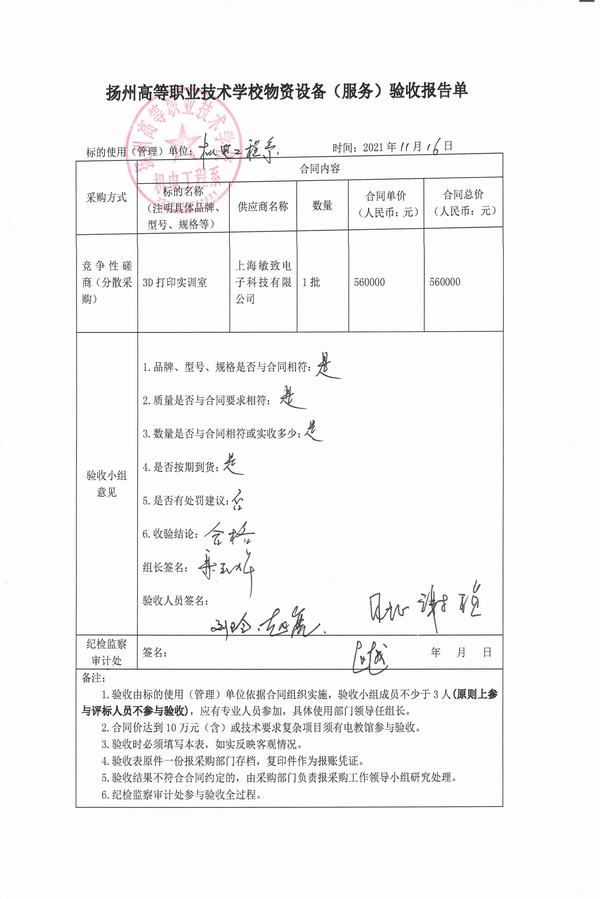 扬州高等职业技术学校物资设备（服务）验收报告单
扬州高等职业技术学校
机电工程系
标的使用（管理）单位：机电工程系
时间：2021年11月16日
合同内容
采购方式
标的名称
（注明具体品牌、
型号、规格等）
供应商名称
数量
合同单价
（人民币：元）
合同总价
（人民币：元）
竞争性磋
商（分散采
购）
3D打印实训室
上海敏致电
子科技有限
公司
1批
560000
560000
验收小组
意见
1.品牌、型号、规格是否与合同相符：是
2.质量是否与合同要求相符：是
3.数量是否与合同相符或实收多少：是
4.是否按期到货：是
5.是否有处罚建议：否
6.收验结论：合格
组长签名：
验收人员签名：
纪检监察
审计处
签名：
年 月 日
备注：
1.验收由标的使用（管理）单位依据合同组织实施，验收小组成员不少于3人(原则上参
与评标人员不参与验收)，应有专业人员参加，具体使用部门领导任组长。
2.合同价达到10万元（含）或技术要求复杂项目须有电教馆参与验收。
3.验收时必须填写本表，如实反映客观情况。
4.验收表原件一份报采购部门存档，复印件作为报账凭证。
5.验收结果不符合合同约定的，由采购部门负责报采购工作领导小组研究处理。
6.纪检监察审计处参与验收全过程。